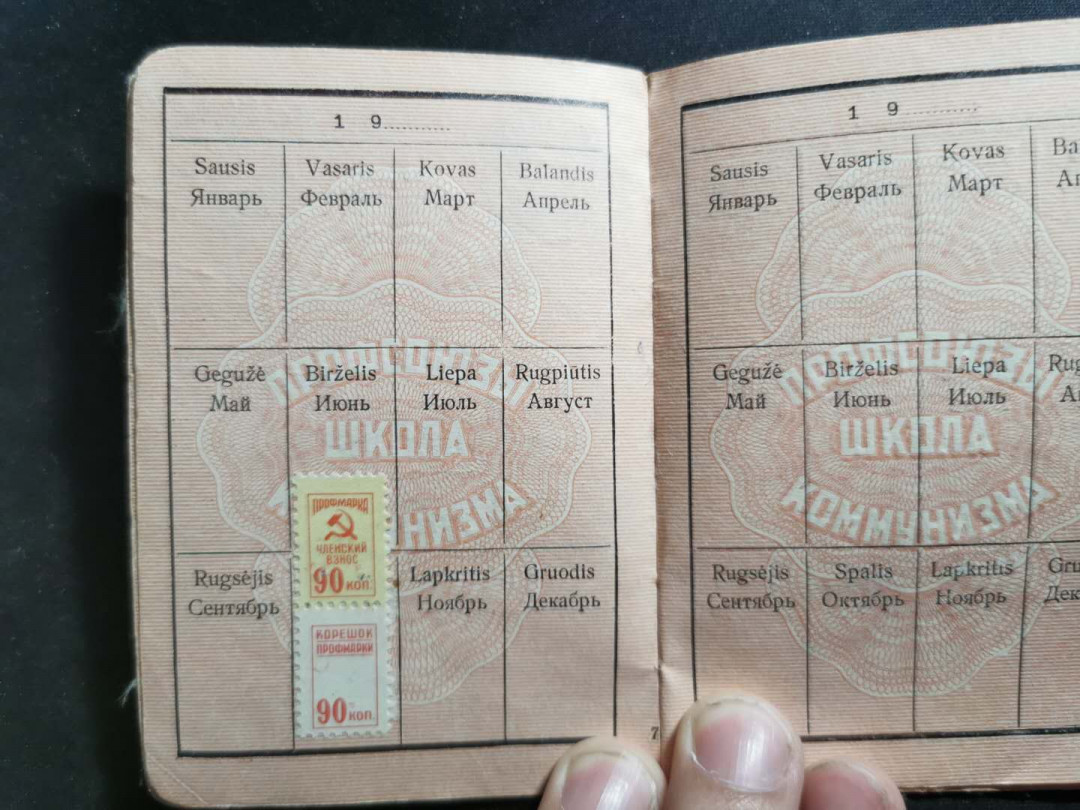 1 9
Sausis Vasaris Kovas Balandis
Январь Февраль Март Апрель
Gegužė Birželis Liepa Rugpiūtis
Май Июнь Июль Август
ПРОФСОЮЗЫ
ШКОЛА
Rugsėjis Lapkritis Gruodis
Сентябрь Ноябрь Декабрь
ПРОФМАРКА
ЧЛЕНСКИЙ
ВЗНОС
90 КОП.
КОРЕШОК
ПРОФМАРКИ
90 КОП.
7
1 9
Sausis Vasaris Kovas
Январь Февраль Март
Gegužė Birželis Liepa
Май Июнь Июль
ПРОФСОЮЗЫ
ШКОЛА
КОММУНИЗМА
Rugsėjis Spalis Lapkritis
Сентябрь Октябрь Ноябрь